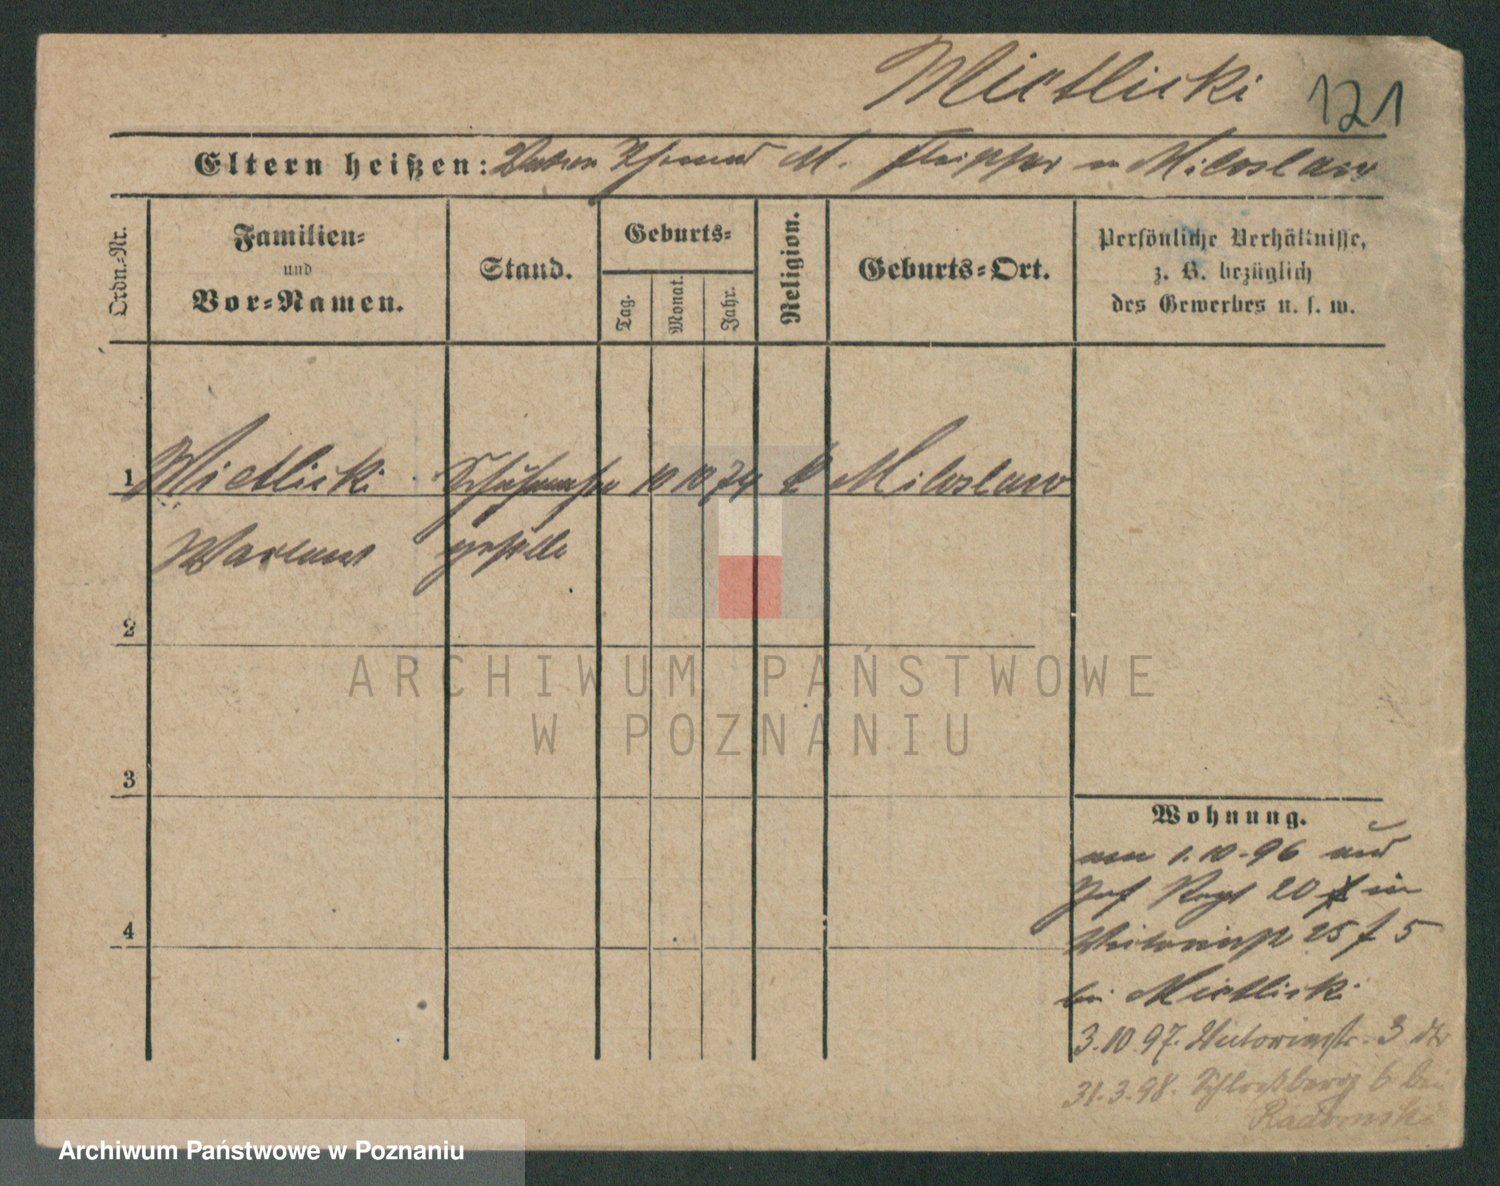 Mietlicki 121
Eltern heißen: M. in Miloslaw
Ordn.-Nr.
Familien-
und
Vor-Namen.
Stand.
Geburts-
Tag.
Monat.
Jahr.
Religion.
Geburts-Ort.
Persönliche Verhältnisse,
z. B. bezüglich
des Gewerbes u. s. w.
1 Mietlicki Schuhmacher 10 10 74 k Miloslaw
geselle
2
3
4
Wohnung.
1.10.96
20 in
25 f 5
bei Mietlicki
3.10.97. Victoriastr. 3
31.3.98. Schloßberg 6 bei
Radomski
ARCHIWUM PAŃSTWOWE
W POZNANIU
Archiwum Państwowe w Poznaniu